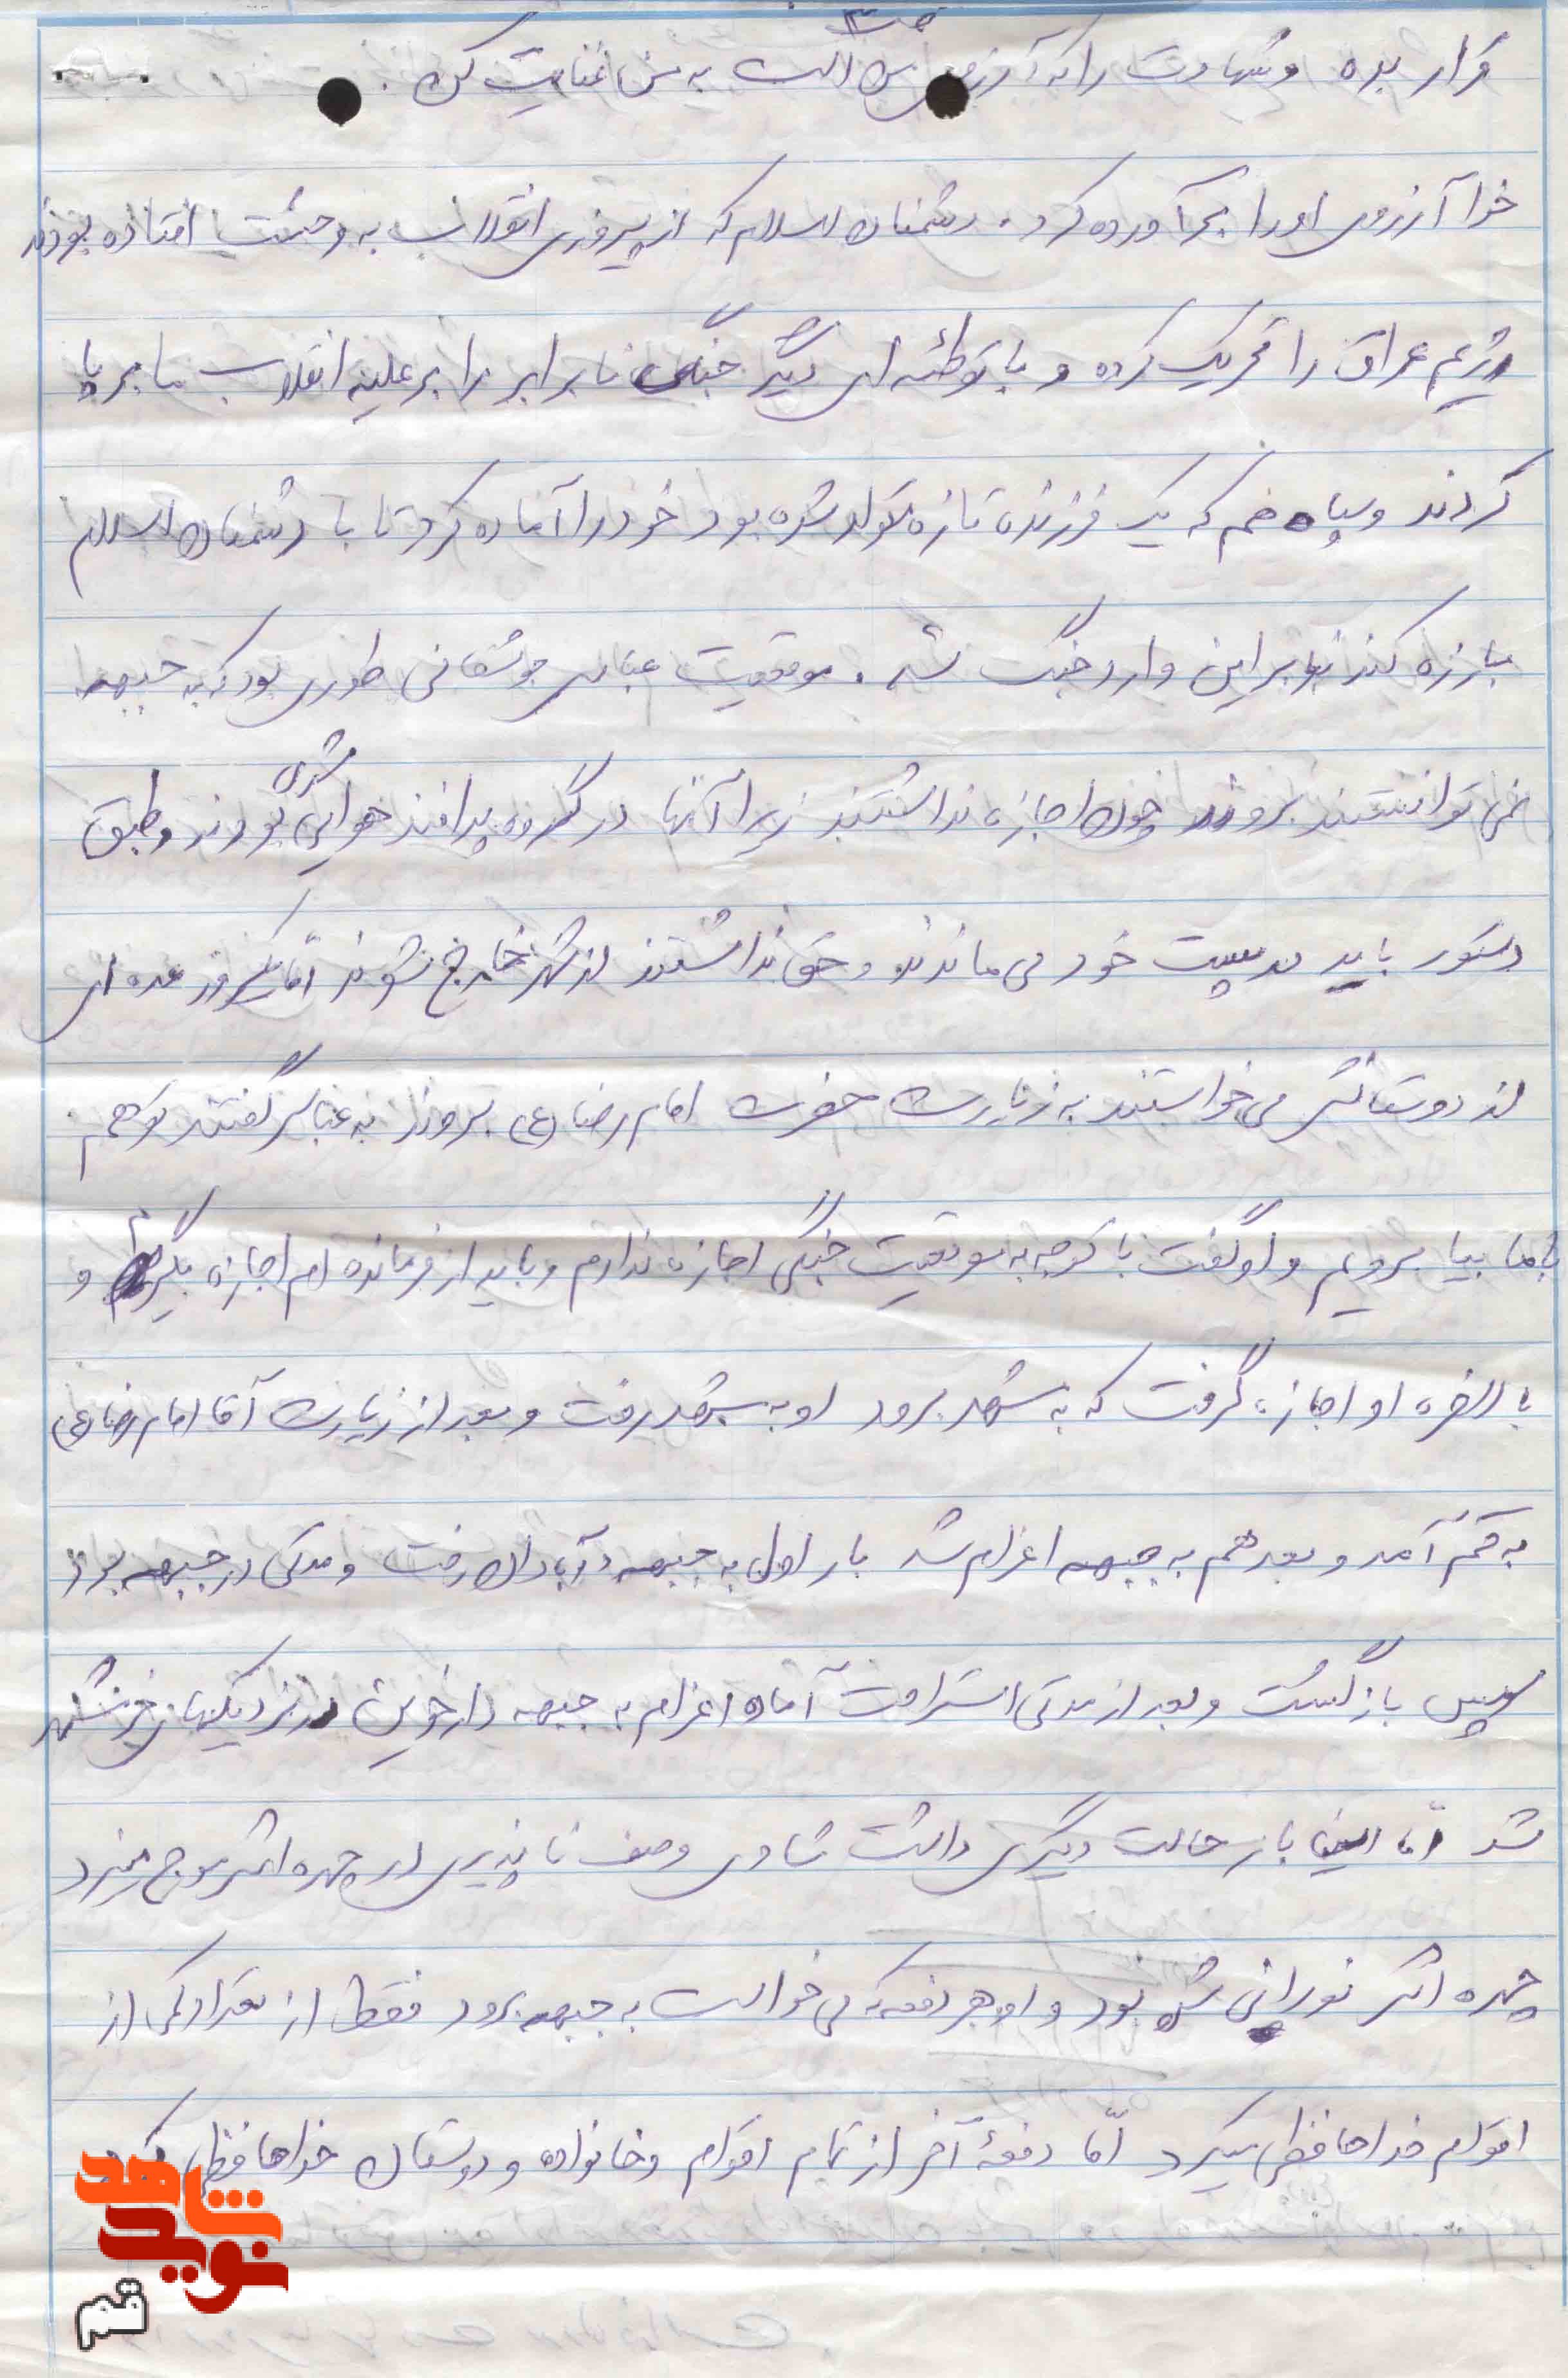 ص ۳
قرار بده و شهادت را که آرزوی من است به من عنایت کن.
خدا آرزوی او را برآورده کرد. دشمنان اسلام که از پیروزی انقلاب به وحشت افتاده بودند
رژیم عراق را تحریک کرده و با توطئه ای دیگر جنگی نابرابر را بر علیه انقلاب ما برپا
کردند و سپاه قم که یک فرزند تازه تولد شده بود خود را آماده کرد تا با دشمنان اسلام
مبارزه کند بنابراین وارد جنگ شد. موقعیت عباس جوشقانی طوری بود که به جبهه
نمی توانستند بروند چون اجازه نداشتند زیرا آنها در گروه پدافند هوایی شهری بودند و طبق
دستور باید در پست خود می ماندند و حق نداشتند از شهر خارج شوند امّا یکروز عده ای
از دوستانش می خواستند به زیارت حضرت امام رضا (ع) بروند به عباس گفتند تو هم
با ما بیا برویم و او گفت با توجه به موقعیت جنگی اجازه ندارم و باید از فرمانده ام اجازه بگیرم و
بالاخره او اجازه گرفت که به مشهد برود او به مشهد رفت و بعد از زیارت آقا امام رضا (ع)
به قم آمد و بعد هم به جبهه اعزام شد بار اول به جبهه آبادان رفت و مدتی در جبهه بود
سپس بازگشت و بعد از مدتی استراحت آماده اعزام به جبهه دارخوین در نزدیکیهای خرمشهر
شد امّا اینبار حالت دیگری داشت شادی وصف ناپذیری در چهره اش موج میزد
چهره اش نورانی شده بود و او هر دفعه که می خواست به جبهه برود فقط از تعداد کمی از
اقوام خداحافظی میکرد امّا دفعهٔ آخر از تمام اقوام و خانواده و دوستان خداحافظی کرد
نوید شاهد
قم